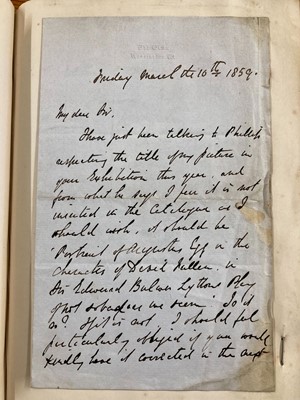 Friday March the 10th 1859.
My dear Sir.
I have just been talking to Phillip
respecting the title of my picture in
your Exhibition this year, and
from what he says I fear it is not
inserted in the Catalogue as I
should wish. it should be
"Portrait of Augustus Egg in the
character of David Fallen. in
Sir Edward Bulwer Lyttons Play
of not so bad as we seem".
as? If it is not, I should feel
particularly obliged if you would
kindly have it corrected in the next